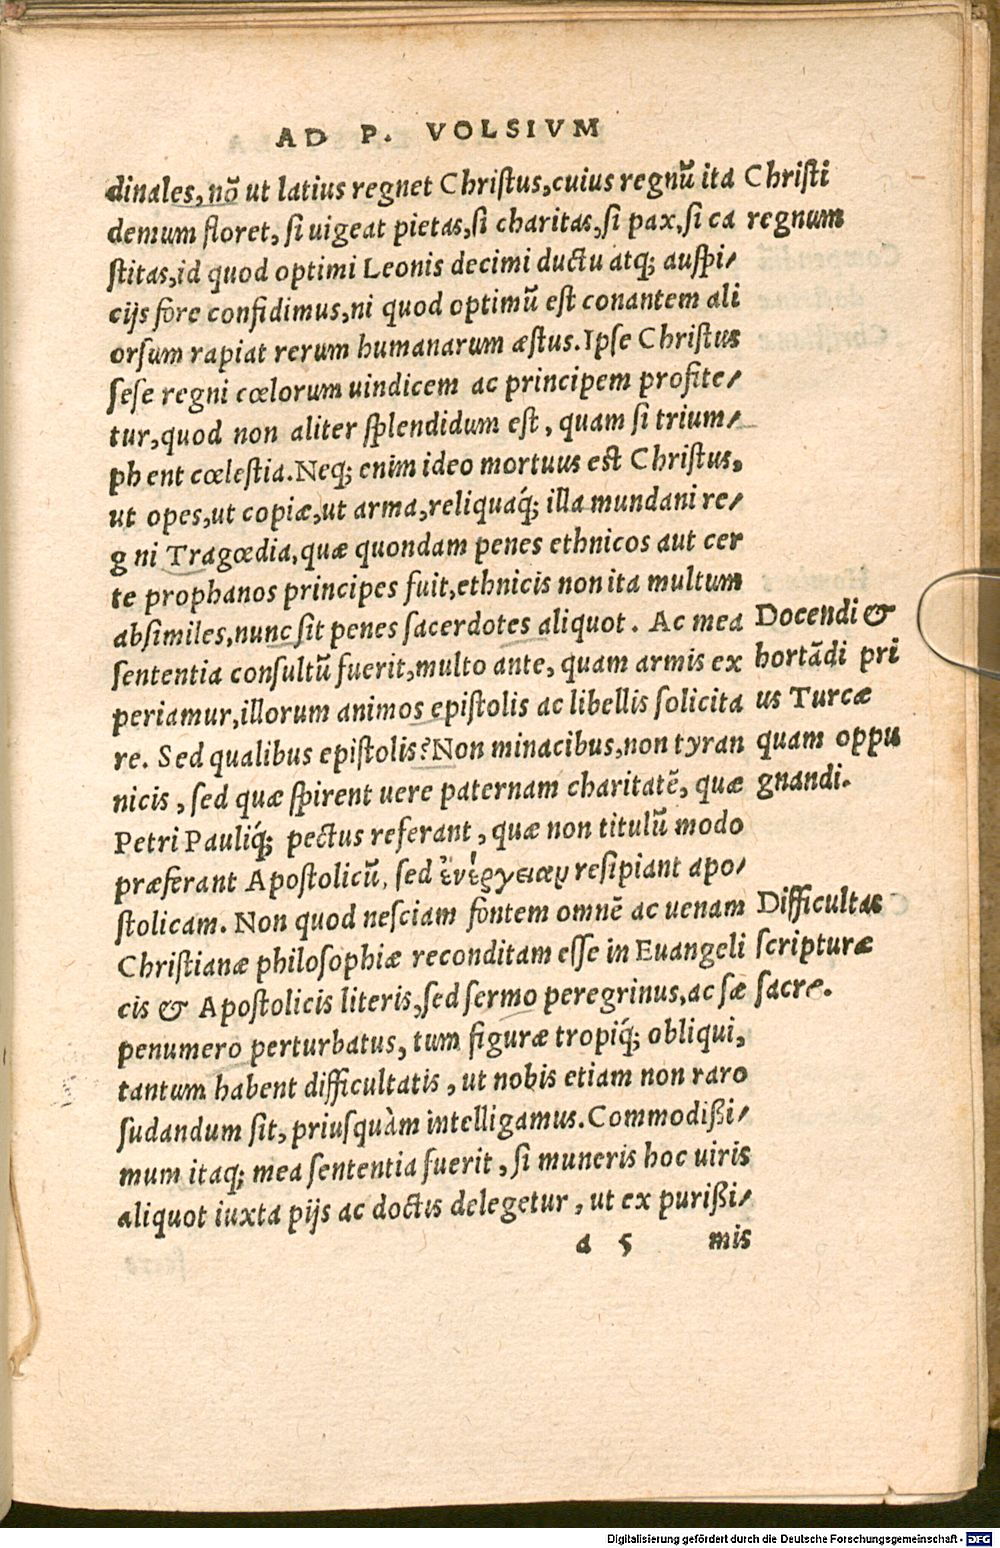 AD P. VOLSIVM
dinales, nõ ut latius regnet Christus, cuius regnũ ita
demum floret, si uigeat pietas, si charitas, si pax, si ca
stitas, id quod optimi Leonis decimi ductu atq; auspi/
cijs fore confidimus, ni quod optimũ est conantem ali
orsum rapiat rerum humanarum æstus. Ipse Christus
sese regni cœlorum uindicem ac principem profite/
tur, quod non aliter splendidum est, quam si trium/
phent cœlestia. Neq; enim ideo mortuus est Christus,
ut opes, ut copiæ, ut arma, reliquaq́; illa mundani re/
gni Tragœdia, quæ quondam penes ethnicos aut cer
te prophanos principes fuit, ethnicis non ita multum
absimiles, nunc sit penes sacerdotes aliquot. Ac mea
sententia consultũ fuerit, multo ante, quam armis ex
periamur, illorum animos epistolis ac libellis solicita
re. Sed qualibus epistolis? Non minacibus, non tyran
nicis, sed quæ spirent uere paternam charitatẽ, quæ
Petri Pauliq́; pectus referant, quæ non titulũ modo
præferant Apostolicũ, sed ἐνέργειαν resipiant apo/
stolicam. Non quod nesciam fontem omnẽ ac uenam
Christianæ philosophiæ reconditam esse in Euangeli
cis & Apostolicis literis, sed sermo peregrinus, ac sæ
penumero perturbatus, tum figuræ tropiq́; obliqui,
tantum habent difficultatis, ut nobis etiam non raro
sudandum sit, priusquàm intelligamus. Commodißi/
mum itaq; mea sententia fuerit, si muneris hoc uiris
aliquot iuxta pijs ac doctis delegetur, ut ex purißi/
a 5 mis
Christi
regnum
Docendi &
hortãdi pri
us Turcæ
quam oppu
gnandi.
Difficultas
scripturæ
sacre.
Digitalisierung gefördert durch die Deutsche Forschungsgemeinschaft - DFG